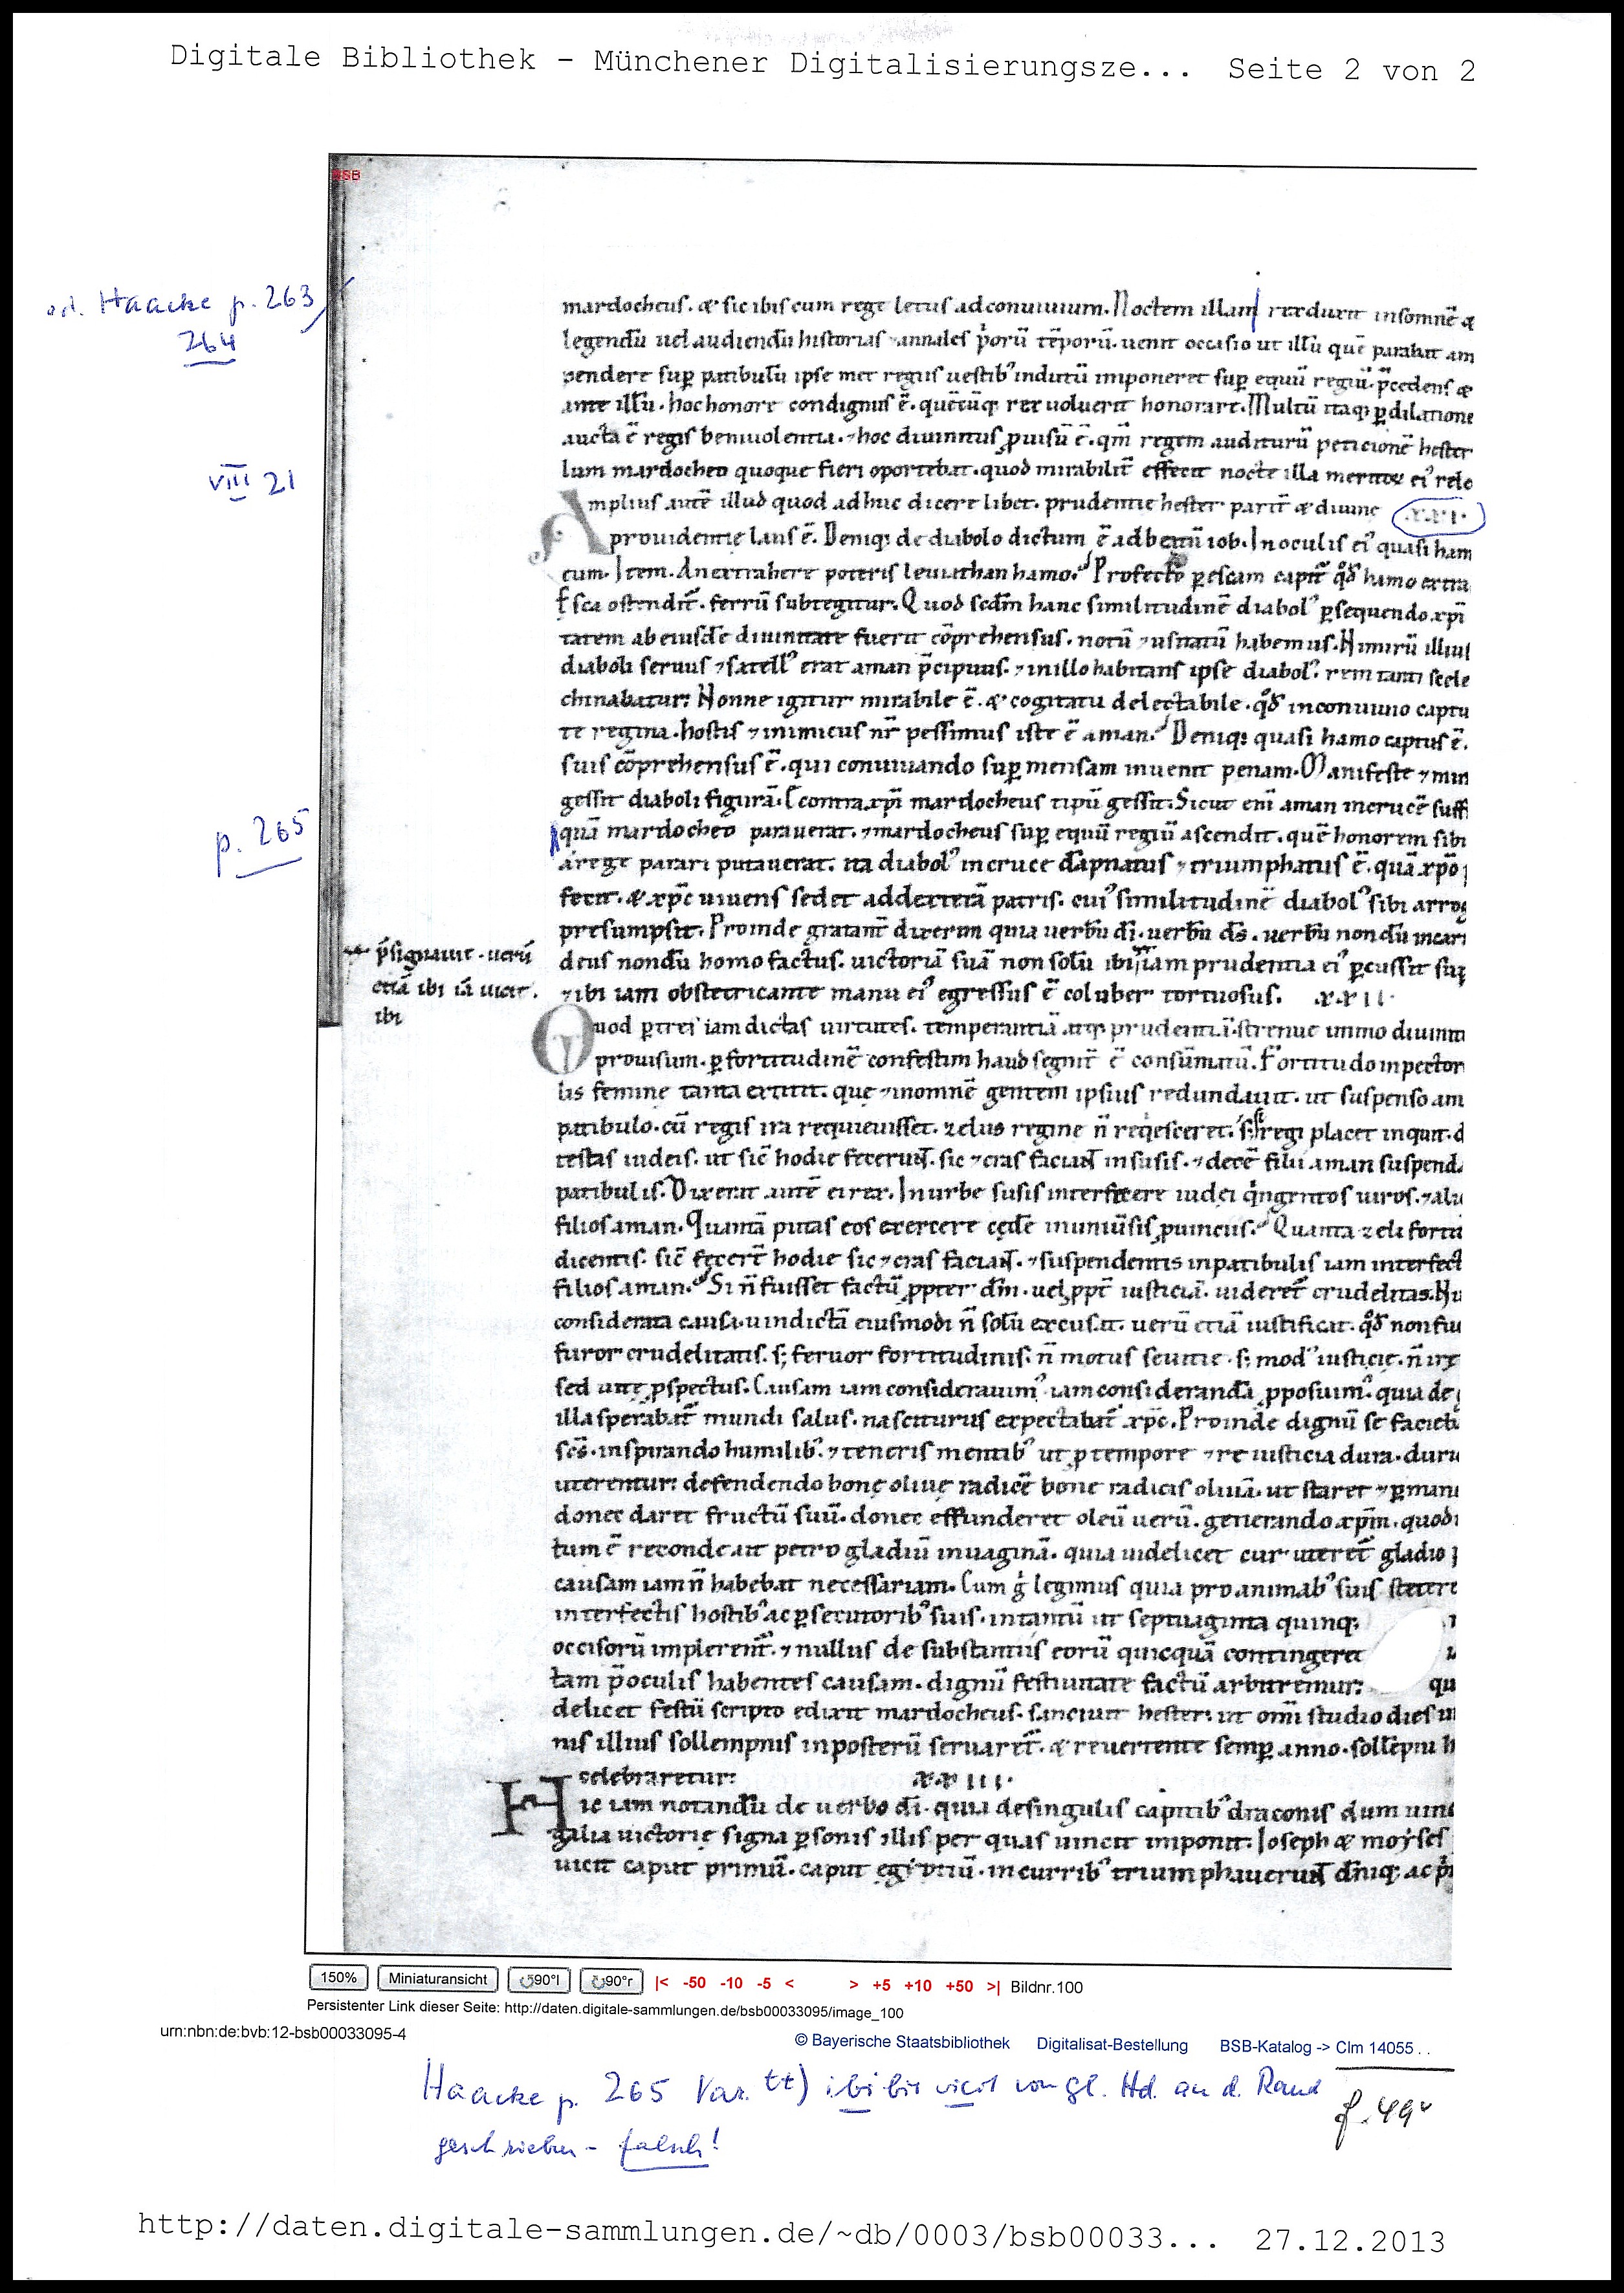 Digitale Bibliothek - Münchener Digitalisierungsze... Seite 2 von 2
BSB
ed. Haacke p. 263
264
mardocheus. & sic ibis cum rege letus ad conuiuium. Noctem illam rex duxit insomnē &
legendū uel audiendū historias ⁊ annales p̓orū tēporū. uenit occasio ut illū quē parabat am
pendere suꝑ patibulū ipse met regiis uestib᾽ indutū imponeret suꝑ equū regiū. p̄cedens &
ante illū. hoc honore condignus ē. quēcūq; rex uoluerit honorare. Multū itaq; ꝑ dilatione
aucta ē regis beniuolentia. ⁊ hoc diuinitus ꝓuisū ē. qm̄ regem auditurū peticionē hester
lum mardocheo quoque fieri oportebat. quod mirabilit̄ effecit nocte illa
VIII 21
Amplius autē illud quod adhuc dicere libet. prudentie hester parit̄ & diuine .xxi.
prouidentie laus ē. Deniq; de diabolo dictum ē ad beatū iob. In oculis ei᾽ quasi ham
cum. Item. An extrahere poteris leuiathan hamo. Profecto ꝑ escam capit̄ qd̓ hamo extra
Esca ostendit̄. ferrū subtegitur. Quod scdm̄ hanc similitudinē diabol᾽ ꝑsequendo xp̄i
tatem ab eiusdē diuinitate fuerit cōprehensus. notū ⁊ usitatū habemus. Nimirū illius
diaboli seruus ⁊ satell᾽ erat aman p̄cipuus. ⁊ in illo habitans ipse diabol᾽. rem tanti scele
chinabatur. Nonne igitur mirabile ē. & cogitatu delectabile. qd̓ in conuiuio captu
te regina. hostis ⁊ inimicus nr̄ pessimus iste ē aman. Deniq; quasi hamo captus ē.
suis cōprehensus ē. qui conuiuando suꝑ mensam inuenit penam. Manifeste ⁊ mir
gessit diaboli figurā. E contra xp̄i mardocheus tipū gessit. Sicut eni aman in crucē suffi
p. 265
quā mardocheo parauerat. ⁊ mardocheus suꝑ equū regiū ascendit. quē honorem sibi
a rege parari putauerat. ita diabol᾽ in cruce dāpnatus ⁊ triumphatus ē. quā xp̄o
fecit. & xp̄c uiuens sedet ad dexterā patris. cui᾽ similitudinē diabol᾽ sibi arrog
presumpsit. Proinde gratant̄ dixerim quia uerbū dī. uerbū ds̄. uerbū nondū incar
p̄signauit. uerū
etiā ibi iā uicit.
ibi
deus nondū homo factus. uictoriā suā non solū ibi iam prudentia ei᾽ ꝑcussit suꝑ
⁊ ibi iam obstetricante manu ei᾽ egressus ē coluber tortuosus. .xxii.
Quod ꝑ tres iam dictas uirtutes. temperantiā atq; prudentiā strenue immo diuinit
prouisum. ꝑ fortitudinē confestim haud segnit̄ ē consūmatū. Fortitudo in pector
lis femine tanta extitit. que ⁊ in omnē gentem ipsius redundauit. ut suspenso am
patibulo. cū regis ira requieuisset. zelus regine n̄ reqiesceret. si regi placet inquit. d
testas iudeis. ut sic̄ hodie fecerunt. sic ⁊ cras faciant in susis. ⁊ decē filii aman suspend
patibulis. Dixerat autē ei rex. In urbe susis interfecere iudei qingentos uiros. ⁊ aliu
filios aman. Quantā putas eos exercere cedē in uniūsis ꝓuinciis. Quanta zeli forti
dicentis. sic̄ fecert̄ hodie sic ⁊ cras faciant. ⁊ suspendentis in patibulis iam interfect
filios aman. Si n̄ fuisset factū ꝓpter dm̄. uel ꝓpt̄ iusticiā. uideret̄ crudelitas. Nu
considerata causa uindictā eiusmodi n̄ solū excusat. uerū etiā iustificat. qd̓ non fiu
furor crudelitatis. s; feruor fortitudinis. n̄ motus seuitie. s; mod᾽ iusticie. n̄
sed ꝓspectus. Causam iam considerauim᾽. iam considerandā ꝓposuim᾽. quia de
illa sperabat̄ mundi salus. nasciturus expectabat̄ xp̄c. Proinde dignū se
scs̄. inspirando humilib᾽. ⁊ teneris mentib᾽ ut ꝓ tempore ⁊ re iusticia dura. duru
uterentur. defendendo bone oliue radicē bone radicis oliuā. ut staret ⁊ ꝑman
donec daret fructū suū. donec effunderet oleū uerū. generando xp̄m. quod
tum ē recondeat petro gladiū in uaginā. quia uidelicet cur uteret̄ gladio
causam iam n̄ habebat necessariam. Cum g̓ legimus quia pro animab᾽ suis stetere
interfectis hostib᾽ ac ꝑsecutorib᾽ suis. in tantū ut septuaginta quinq;
occisorū implerent̄. ⁊ nullus de substantiis eorū quicquā contingeret
tam p̄ oculis habentes causam. dignū festiuitate factū arbitremur. qu
delicet festū scripto edixit mardocheus. sanciuit hester. ut omī studio dies
nis illius sollempnis in posterū seruaret̄. & reuertente semꝑ anno. sollēpni
celebraretur. xxiii.
Hic iam notandū de uerbo dī. quia de singulis capitib᾽ draconis dum uinc
galia uictorie signa ꝑsonis illis per quas uincit imponit. Ioseph & moyses
uicit caput primū. caput egiptiū. in currib᾽ triumphauerunt deniq; ac
150% Miniaturansicht 90°l 90°r |< -50 -10 -5 < > +5 +10 +50 >| Bildnr.100
Persistenter Link dieser Seite: http://daten.digitale-sammlungen.de/bsb00033095/image_100
urn:nbn:de:bvb:12-bsb00033095-4
© Bayerische Staatsbibliothek Digitalisat-Bestellung BSB-Katalog -> Clm 14055 . .
Haacke p. 265 Var. tt) ibi bis vicit von gl. Hd. an d. Rand
geschrieben - falsch!
f. 49v
http://daten.digitale-sammlungen.de/~db/0003/bsb00033... 27.12.2013